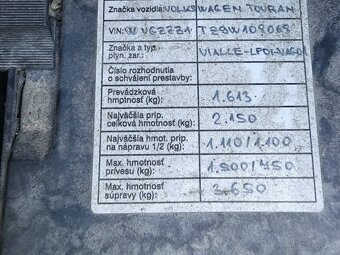 Značka vozidla: VOLKSWAGEN TOURAN
VIN: WVGZZZ1TZ8W108068
Značka a typ plyn. zar.: VIALLE-LPDI-VAG01
Číslo rozhodnutia o schválení prestavby:
Prevádzková hmotnosť (kg): 1.613
Najväčšia príp. celková hmotnosť (kg): 2.150
Najväčšia hmot. príp. na nápravu 1/2 (kg): 1.110/1.100
Max. hmotnosť prívesu (kg): 1.500/750
Max. hmotnosť súpravy (kg): 3.650